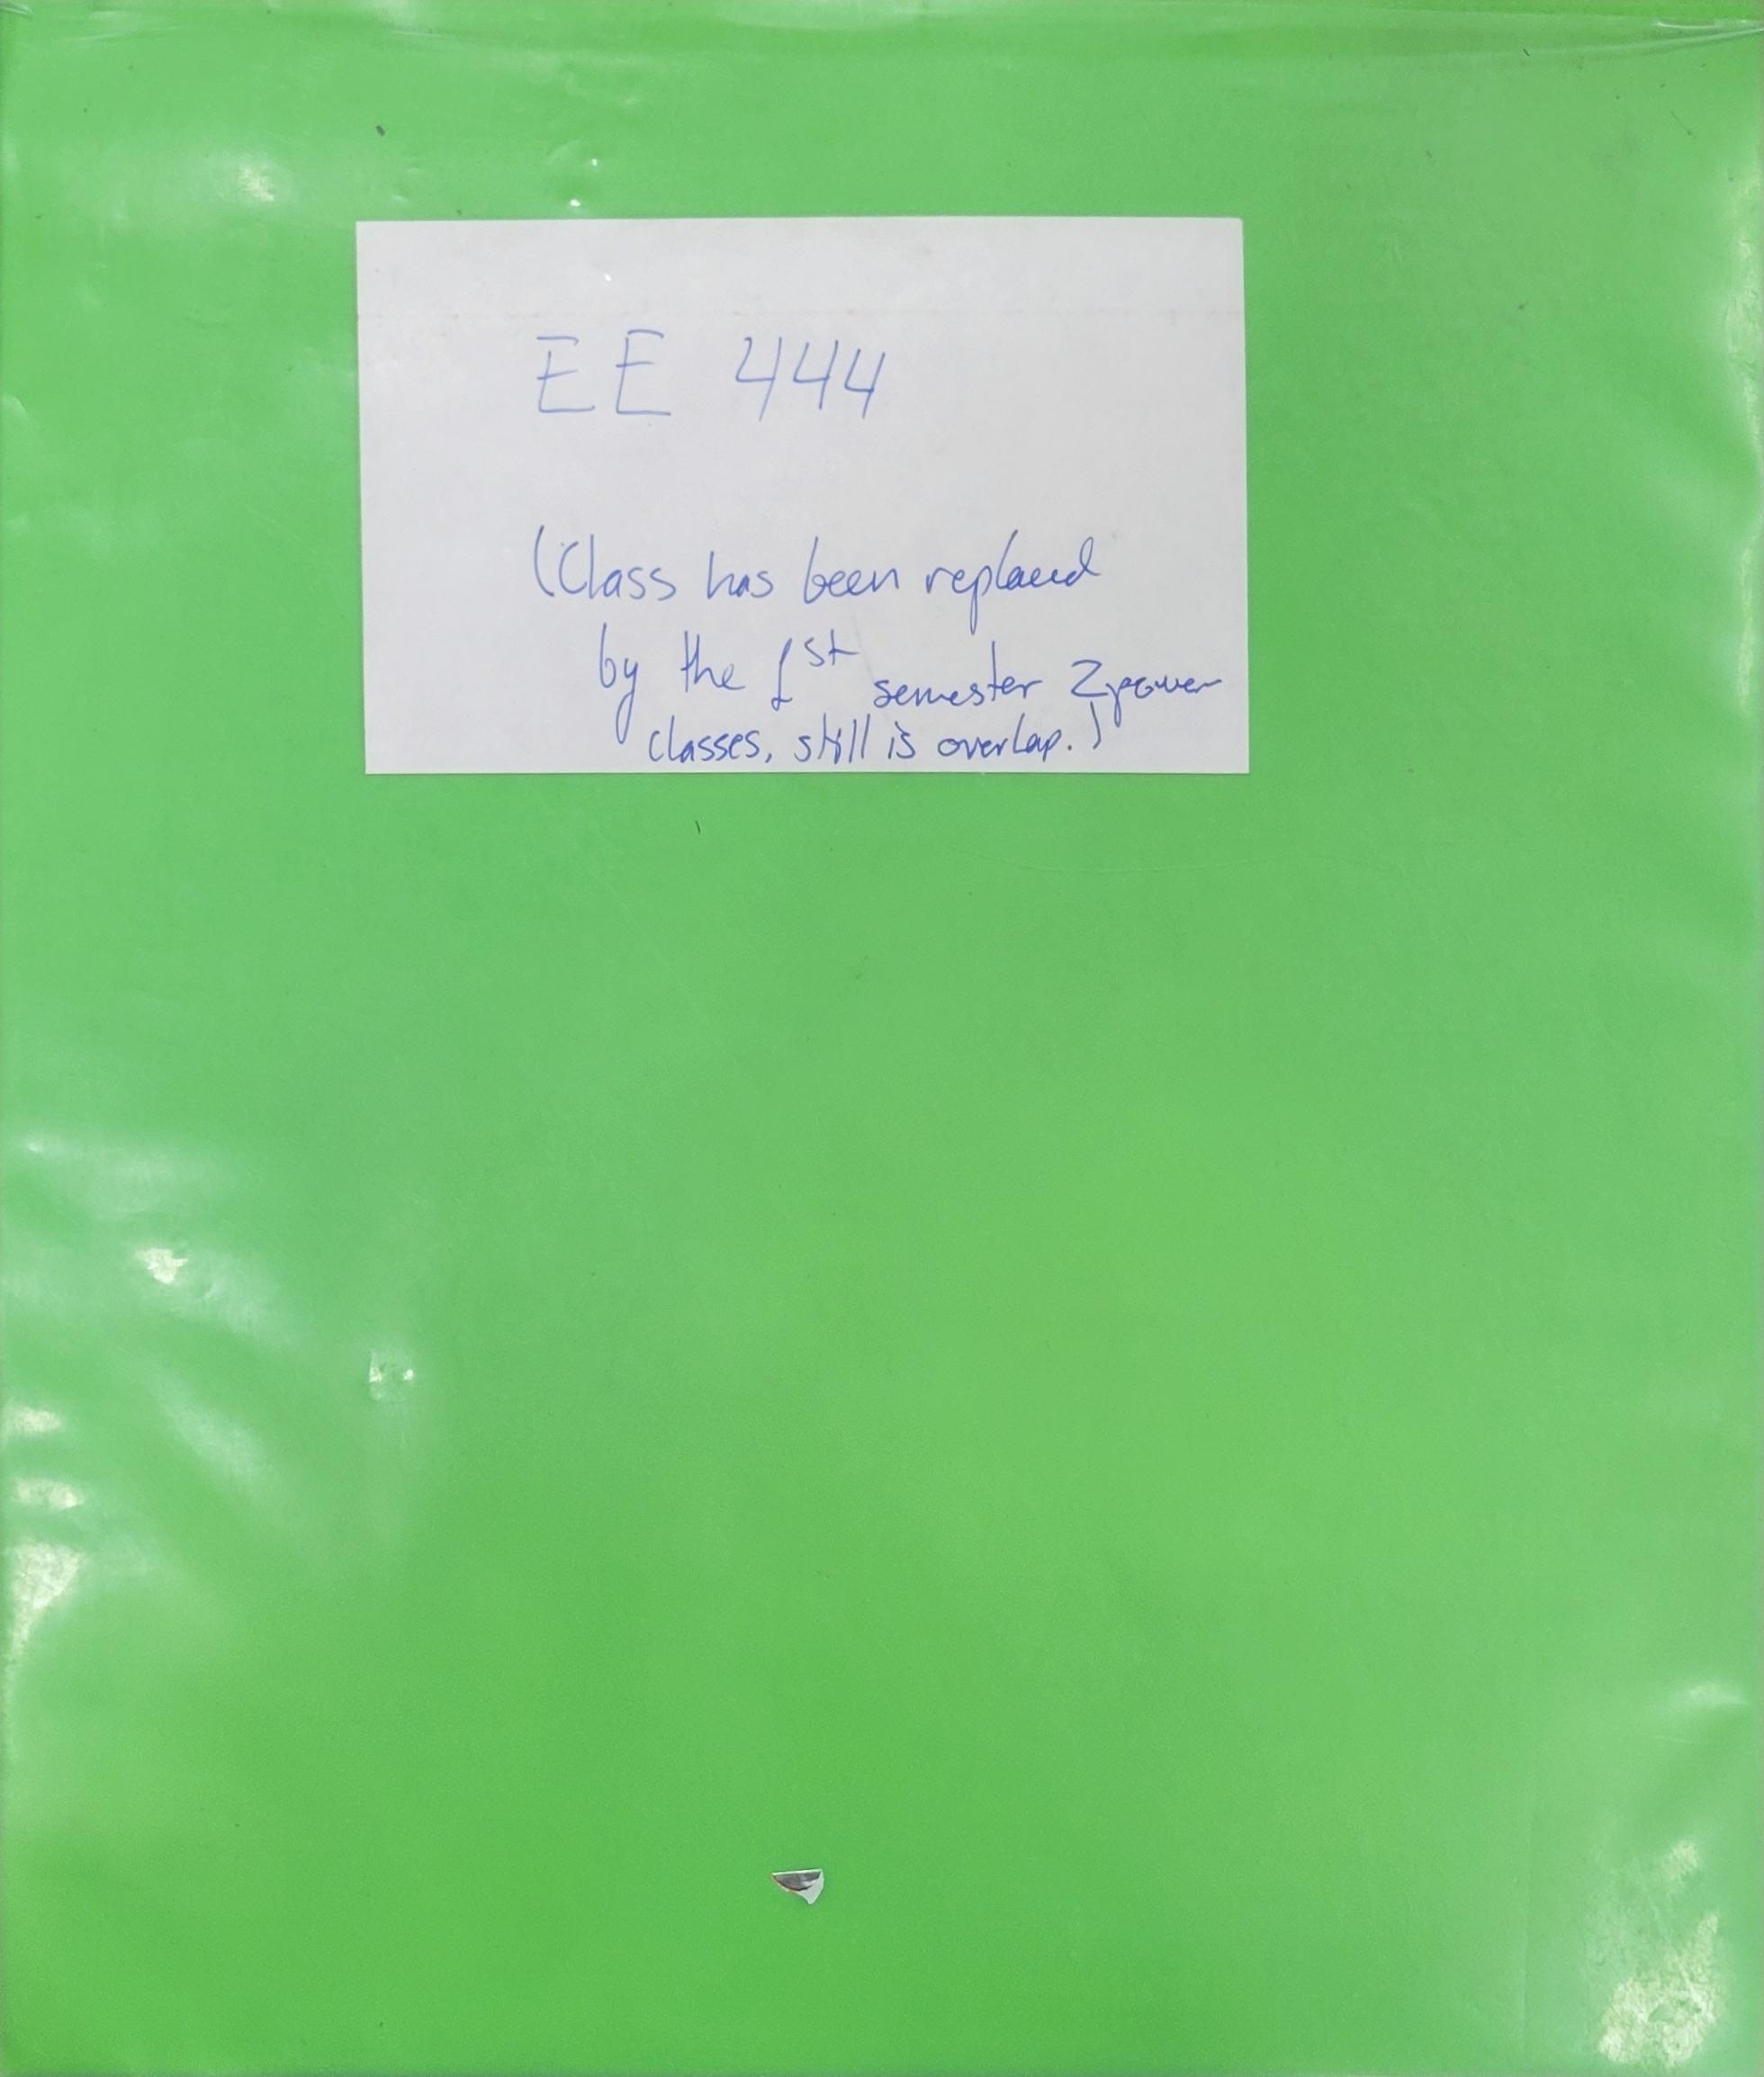 EE 444
(Class has been replaced
by the 1st semester 2 power
classes, still is overlap.)